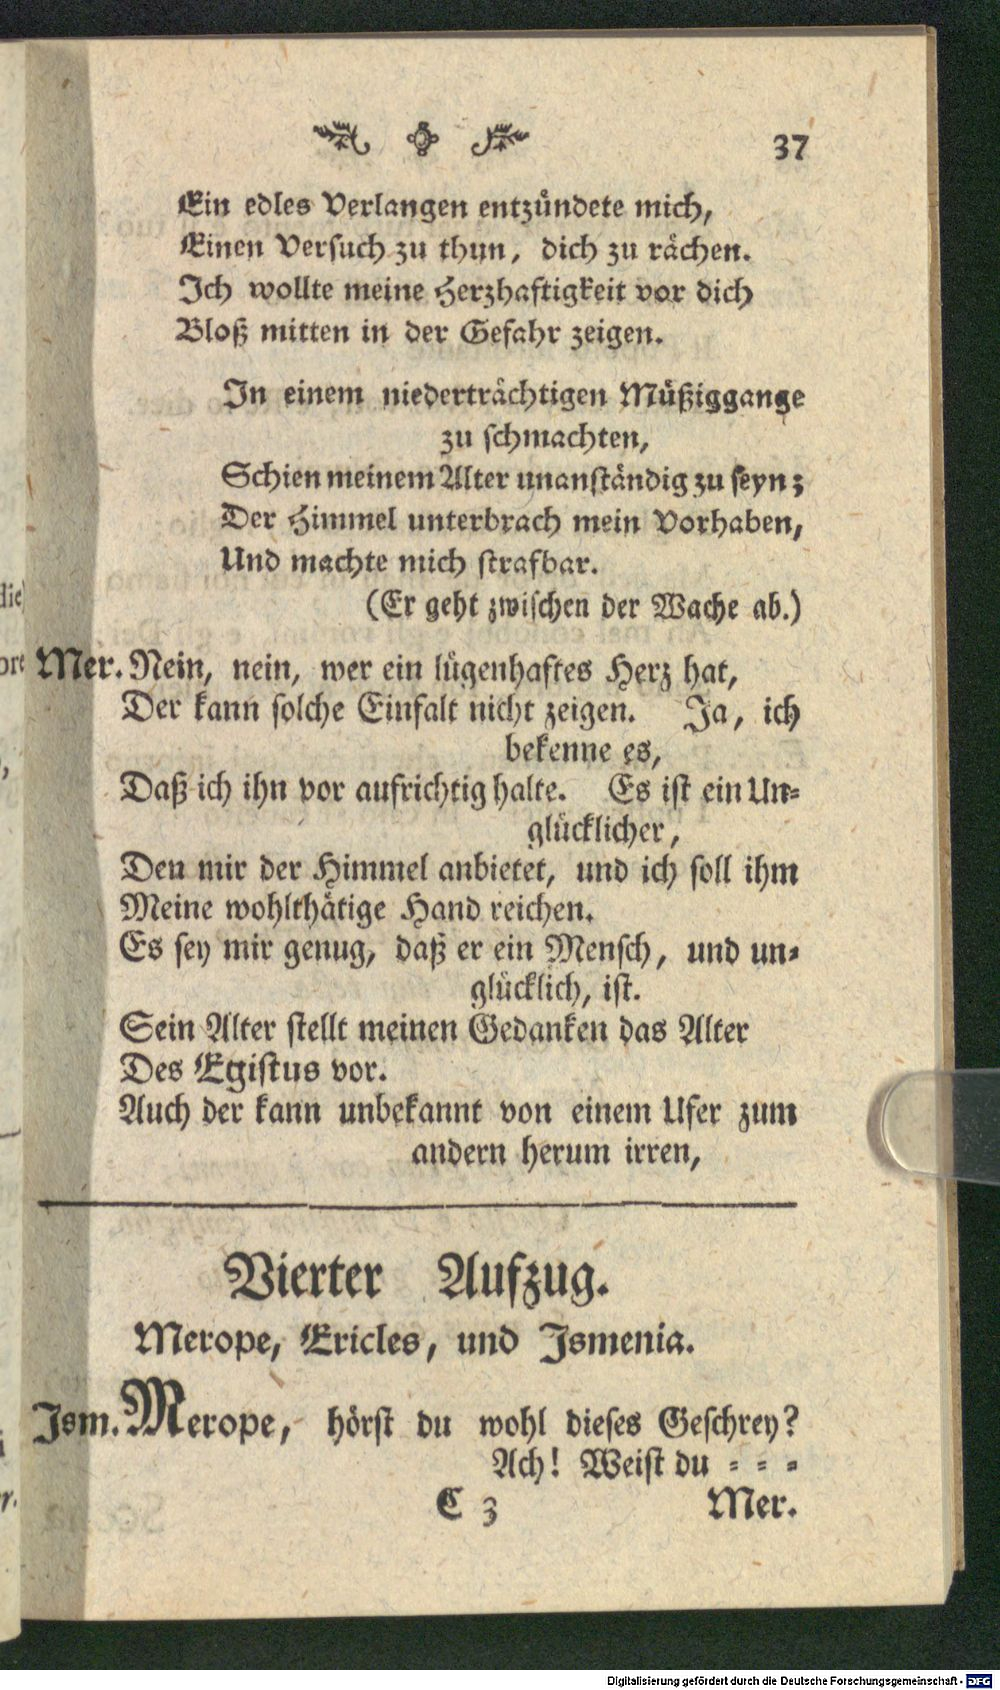 37
Ein edles Verlangen entzündete mich,
Einen Versuch zu thun, dich zu rächen.
Ich wollte meine Herzhaftigkeit vor dich
Bloß mitten in der Gefahr zeigen.
In einem niederträchtigen Müßiggange
zu schmachten,
Schien meinem Alter unanständig zu seyn;
Der Himmel unterbrach mein Vorhaben,
Und machte mich strafbar.
(Er geht zwischen der Wache ab.)
Mer. Nein, nein, wer ein lügenhaftes Herz hat,
Der kann solche Einfalt nicht zeigen. Ja, ich
bekenne es,
Daß ich ihn vor aufrichtig halte. Es ist ein Un-
glücklicher,
Den mir der Himmel anbietet, und ich soll ihm
Meine wohlthätige Hand reichen.
Es sey mir genug, daß er ein Mensch, und un-
glücklich, ist.
Sein Alter stellt meinen Gedanken das Alter
Des Egistus vor.
Auch der kann unbekannt von einem Ufer zum
andern herum irren,
Vierter Aufzug.
Merope, Ericles, und Ismenia.
Ism. Merope, hörst du wohl dieses Geschrey?
Ach! Weist du = = =
C 3 Mer.
Digitalisierung gefördert durch die Deutsche Forschungsgemeinschaft - DFG